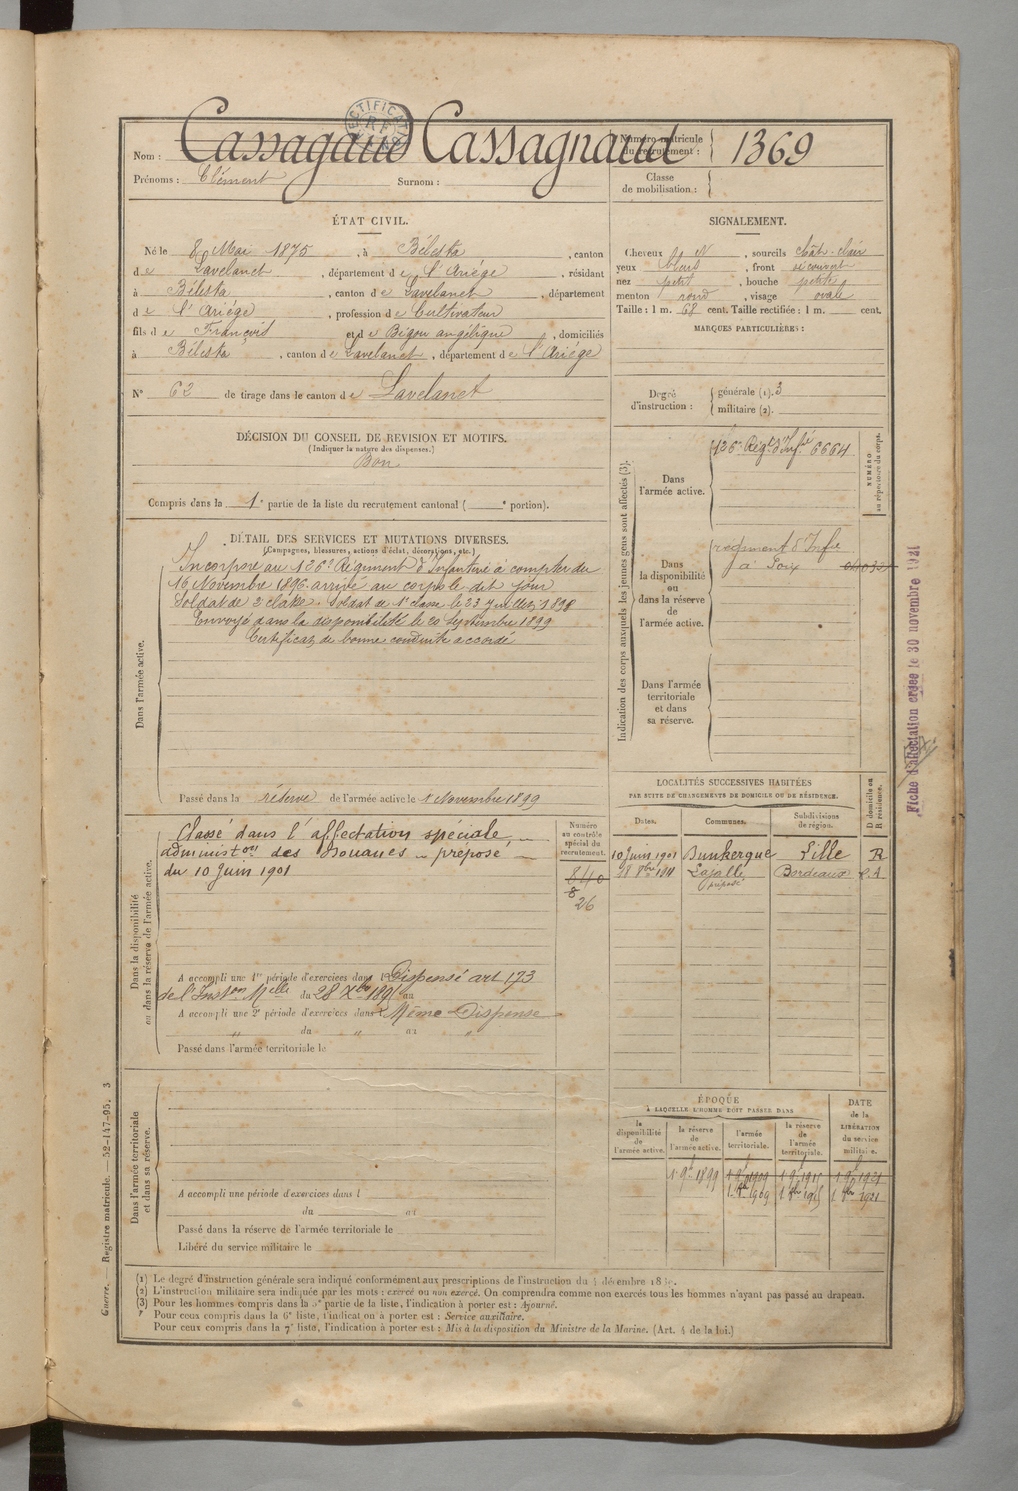 Nom : Cassagaud Cassagnaud
Numéro matricule du recrutement : 1369
Prénoms : Clément Surnom :
Classe de mobilisation :
ÉTAT CIVIL.
Né le 8 Mai 1875, à Bélesta, canton
de Lavelanet, département de l'Ariége, résidant
à Bélesta, canton de Lavelanet, département
de l'Ariége, profession de Cultivateur
fils de François et de Bigou angélique, domiciliés
à Bélesta, canton de Lavelanet, département de l'Ariége
N° 62 de tirage dans le canton de Lavelanet
SIGNALEMENT.
Cheveux N, sourcils chât-clair
yeux bleus, front découvert
nez petit, bouche petite
menton rond, visage ovale
Taille : 1 m. 68 cent. Taille rectifiée : 1 m. cent.
MARQUES PARTICULIÈRES :
Degré d'instruction : générale (1). 3
militaire (2).
DÉCISION DU CONSEIL DE REVISION ET MOTIFS.
(Indiquer la nature des dispenses.)
Bon
Compris dans la 1e partie de la liste du recrutement cantonal ( e portion).
DÉTAIL DES SERVICES ET MUTATIONS DIVERSES.
(Campagnes, blessures, actions d'éclat, décorations, etc.)
Dans l'armée active.
Incorporé au 126e Régiment d'Infanterie à compter du
16 Novembre 1896 arrivé au corps le dit jour
Soldat de 2e classe. Soldat de 1e classe le 23 juillet 1898
Envoyé dans la disponibilité le 20 Septembre 1899
Certificat de bonne conduite accordé
Passé dans la réserve de l'armée active le 1 Novembre 1899
Indication des corps auxquels les jeunes gens sont affectés (3).
NUMÉRO au répertoire du corps.
Dans l'armée active.
126e Régt d'Infie 6664
Dans la disponibilité ou dans la réserve de l'armée active.
régiment d'Infie
à Foix
Dans l'armée territoriale et dans sa réserve.
Fiche d'affectation créée le 30 novembre 1921
Dans la disponibilité ou dans la réserve de l'armée active.
Classé dans l'affectation spéciale
administon des Douanes - préposé -
du 10 Juin 1901
Numéro au contrôle spécial du recrutement.
840
8
26
A accompli une 1re période d'exercices dans l Dispensé art 173
de l'Inston Mlle du 28 Xbre 1895 au
A accompli une 2e période d'exercices dans l Même Dispense
" du " au "
Passé dans l'armée territoriale le
LOCALITÉS SUCCESSIVES HABITÉES
PAR SUITE DE CHANGEMENTS DE DOMICILE OU DE RÉSIDENCE.
Dates. Communes. Subdivisions de région. D domicile ou R résidence.
10 Juin 1901 Dunkerque Lille R
préposé Bordeaux
Dans l'armée territoriale et dans sa réserve.
A accompli une période d'exercices dans l
du au
Passé dans la réserve de l'armée territoriale le
Libéré du service militaire le
ÉPOQUE
À LAQUELLE L'HOMME DOIT PASSER DANS
la disponibilité de l'armée active.
la réserve de l'armée active.
l'armée territoriale.
la réserve de l'armée territoriale.
DATE de la LIBÉRATION du service militaire.
1 9bre 1899 1 9bre 1909 1 9bre 1915 1 9bre 1921
1 8bre 1909 1 8bre 1915 1 8bre 1921
(1) Le degré d'instruction générale sera indiqué conformément aux prescriptions de l'instruction du 4 décembre
(2) L'instruction militaire sera indiquée par les mots : exercé ou non exercé. On comprendra comme non exercés tous les hommes n'ayant pas passé au drapeau.
(3) Pour les hommes compris dans la 5e partie de la liste, l'indication à porter est : Ajourné.
Pour ceux compris dans la 6e liste, l'indication à porter est : Service auxiliaire.
Pour ceux compris dans la 7e liste, l'indication à porter est : Mis à la disposition du Ministre de la Marine. (Art. 4 de la loi.)
Guerre. — Registre matricule. — 52-147-95. 3